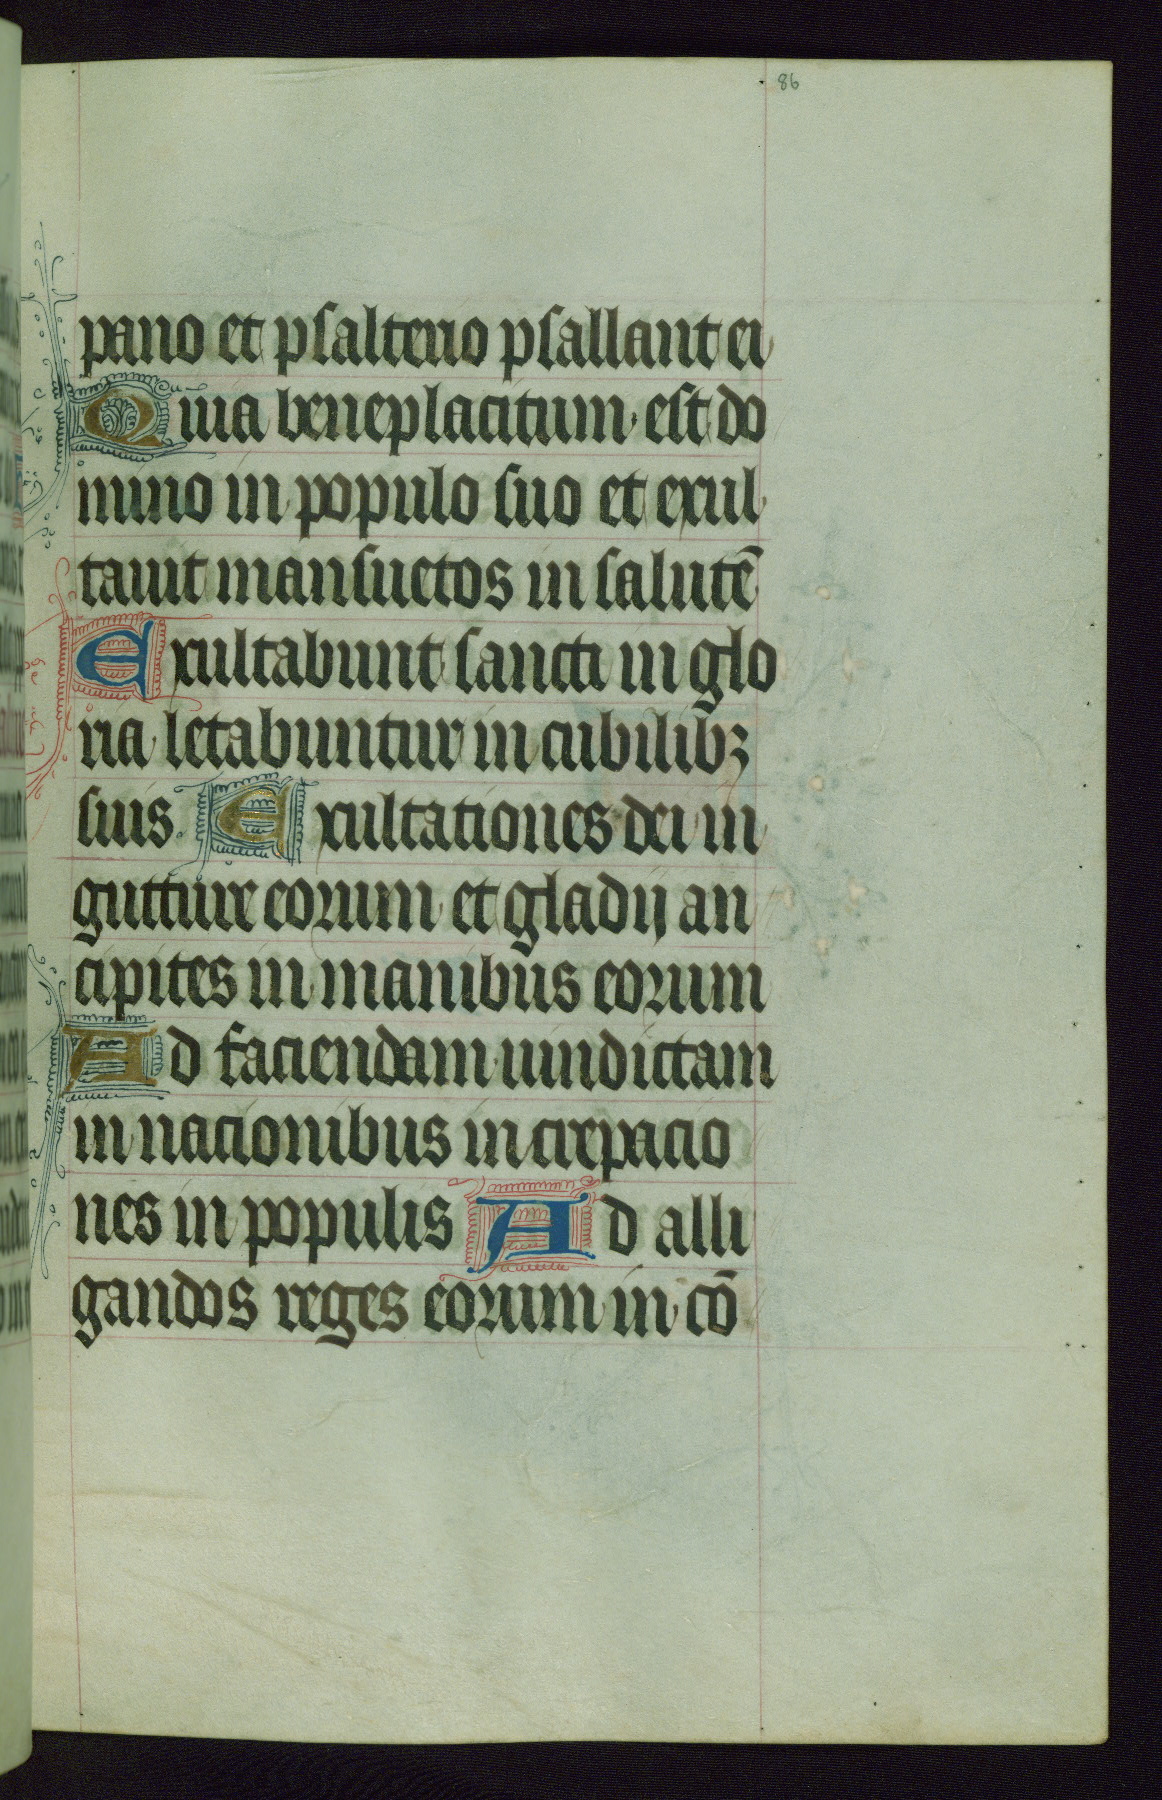 86
pano et psalterio psallant ei
Quia beneplacitum est do
mino in populo suo et exul
tauit mansuetos in salutē
Exultabunt sancti in glo
ria letabuntur in cubilibꝫ
suis Exultationes dei in
gutture eorum et gladij an
cipites in manibus eorum
Ad faciendam uindictam
in nacionibus increpacio
nes in populis Ad alli
gandos reges eorum in cō